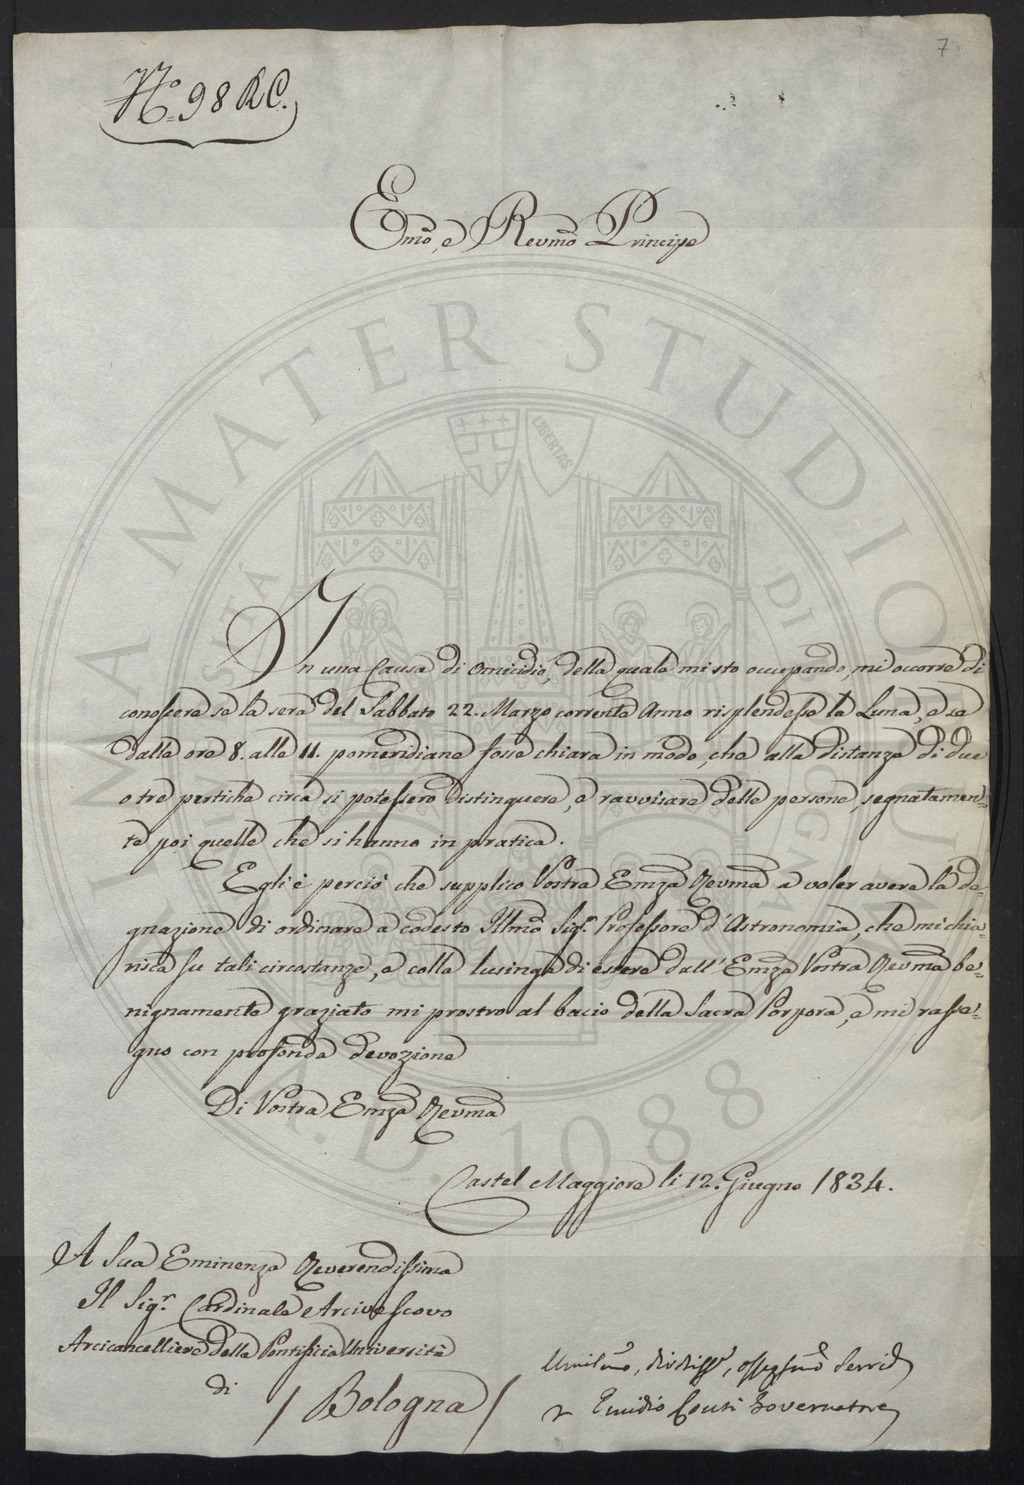 7
N.° 98 R.C.
Emo, e Revmo Principe
In una Causa di Omicidio, della quale mi sto occupando, mi occorre di
conoscere se la sera del Sabbato 22. Marzo corrente Anno risplendesse la Luna, e se
dalle ore 8. alle 11. pomeridiane fosse chiara in modo, che alla distanza di due
o tre pertiche circa si potessero distinguere, e ravvisare delle persone, segnatamen=
te poi quelle che si hanno in pratica.
Egli è perciò che supplico Vostra Emza Revma a voler avere la de=
gnazione di ordinare a codesto Illmo Sigr. Professore d'Astronomia, che mi chia=
risca su tali circostanze, e colla lusinga di essere dall'Emza Vostra Revma be=
nignamente graziato mi prostro al bacio della Sacra Porpora, e mi rasse=
gno con profonda devozione
Di Vostra Emza Revma
Castel Maggiore li 12. Giugno 1834.
A Sua Eminenza Reverendissima
Il Sigr. Cardinale Arcivescovo
Arcicancelliere della Pontificia Università
di
/ Bologna /
Umilmo, ossequmo Servid
Emidio Conti Governatore
ALMA MATER STUDIORUM
UNIVERSITÀ DI BOLOGNA
LIBERTAS
A.D. 1088